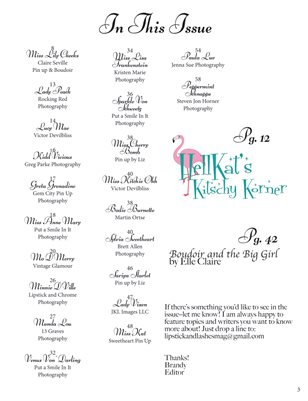 In This Issue
8
Miss Lily Cheeks
Claire Seville
Pin up & Boudoir
13
Lady Peach
Rocking Red
Photography
14
Lucy Mae
Victor Devilbliss
16
Kidd Vicious
Greg Parke Photography
17
Greta Grenadine
Gem City Pin Up
Photography
18
Miss Anna Mary
Put a Smile In It
Photography
20
Mo D'Morry
Vintage Glamour
26
Minnie D'Ville
Lipstick and Chrome
Photography
27
Manda Lou
13 Graves
Photography
32
Venus Von Darling
Put a Smile In It
Photography
34
Miss Lisa
Frankenstein
Kristen Marie
Photography
36
Sparkle Von
Schweetz
Put a Smile In It
Photography
38
Miss Cherry
Bomb
Pin up by Liz
40
Miss Kitschie Ohh
Victor Devilbliss
38
Bodie Burnette
Martin Ortise
40
Sylvia Sweetheart
Brett Allen
Photography
46
Scripn Starlet
Pin up by Liz
47
Lady Vixen
JKL Images LLC
48
Miss Kat
Sweetheart Pin Up
54
Paula Lux
Jenna Sue Photography
58
Peppermint
Schnapps
Steven Jon Horner
Photography
Pg. 12
HellKat's
Kitschy Korner
Pg. 42
Boudoir and the Big Girl
by Elle Claire
If there's something you'd like to see in the
issue-let me know! I am always happy to
feature topics and writers you want to know
more about! Just drop a line to:
lipstickandlashesmag@gmail.com
Thanks!
Brandy
Editor
3